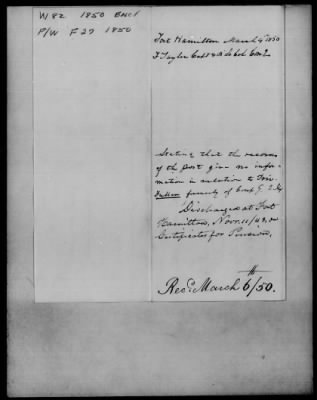 W 82 1850 ENCL
P/W F 27 1850
Fort Hamilton March 4 1850
F Taylor Capt &
Stating that the records
of the post give no infor-
mation in relation to Priv.
formerly of Comp G 2
Discharged at Fort
Hamilton, Novr. 11/48, on
Certificates for Pension.
Recd March 6th/50.